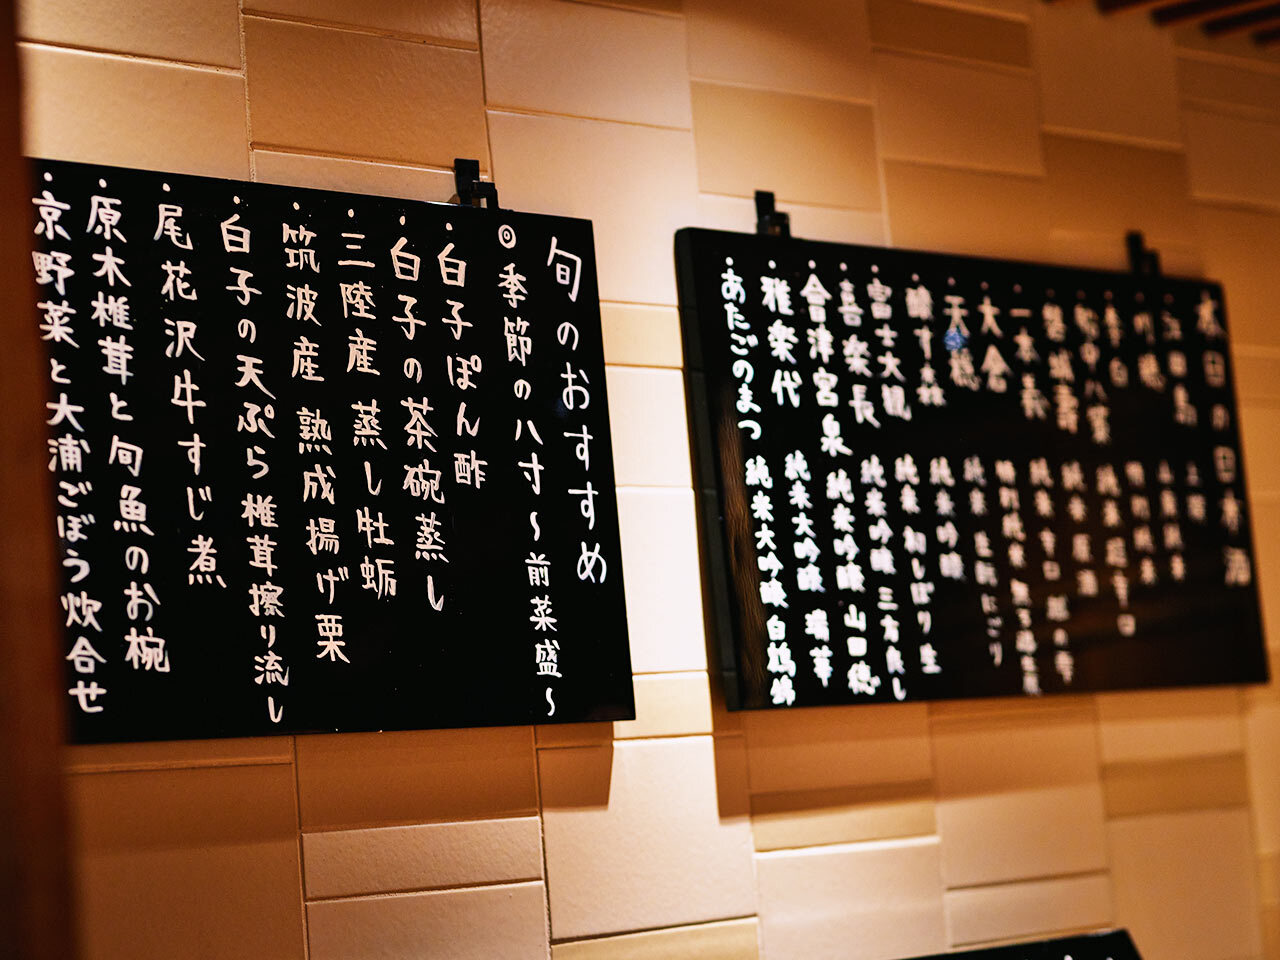 旬のおすすめ
◎季節の八寸〜前菜盛〜
・白子ぽん酢
・白子の茶碗蒸し
・三陸産 蒸し牡蛎
・筑波産 熟成揚げ栗
・白子の天ぷら椎茸擦り流し
・尾花沢牛すじ煮
・原木椎茸と旬魚のお椀
・京野菜と大浦ごぼう炊合せ
本日の日本酒
・江田島
・川鶴
・李白 純米 超辛口
・船中八策
・磐城壽
・一本義
・大倉 純米 生酛 にごり
・天穏 純米吟醸
・醸す森 純米 初しぼり 生
・富士大観 純米吟醸 三方良し
・喜楽長 純米吟醸 山田穂
・會津宮泉 純米吟醸
・雅楽代 純米大吟醸 瑞華
・あたごのまつ 純米大吟醸 白鶴錦